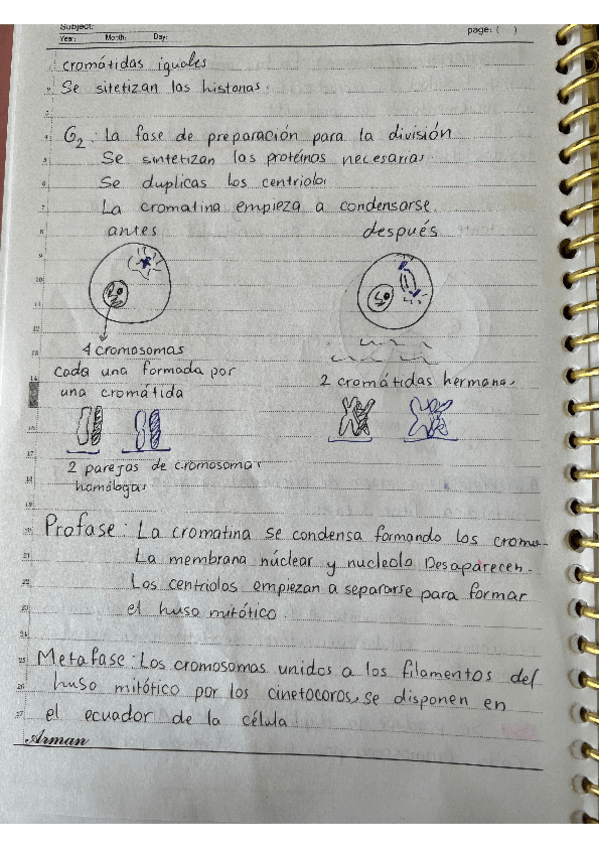 Subject:
Year: Month: Day:
page: ( )
cromátidas iguales
Se sitetizan las histonas.
G2: La fase de preparación para la división
Se sintetizan las proteínas necesarias.
Se duplicas los centriolos
La cromatina empieza a condensarse.
antes después
4 cromosomas
cada una formada por
una cromátida
2 cromátidas hermanas
2 parejas de cromosomas
homólogas
Profase: La cromatina se condensa formando los cromo-
La membrana núclear y nucleolo Desaparecen.
Los centriolos empiezan a separarse para formar
el huso mitótico.
Metafase: Los cromosomas unidos a los filamentos del
huso mitótico por los cinetocoros, se disponen en
el ecuador de la célula.
Arman